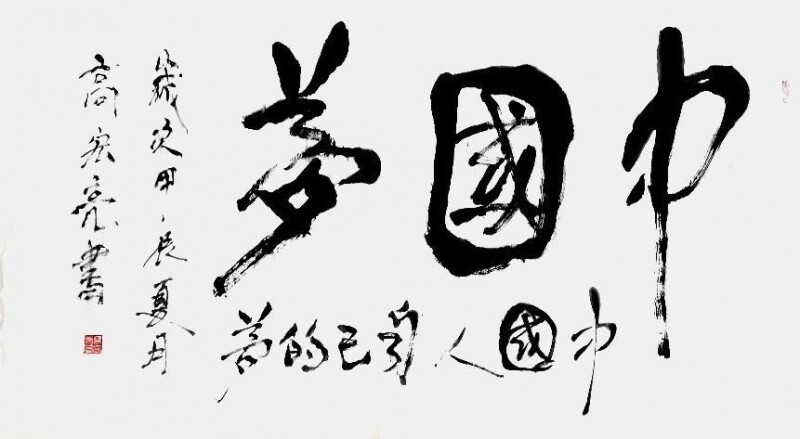 中國夢
中國人自己的夢
歲次甲辰夏月
高宏亮書